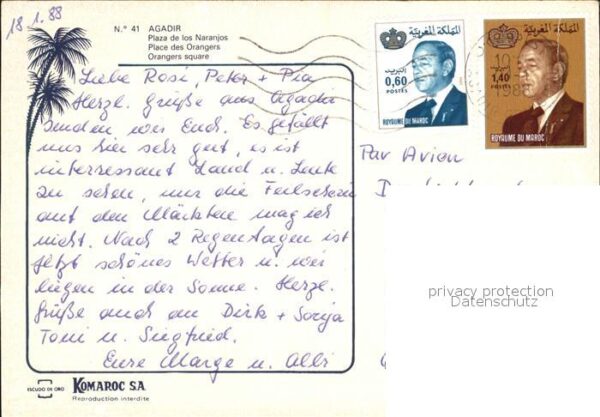 18.1.88
N.º 41 AGADIR
Plaza de los Naranjos
Place des Orangers
Orangers square
Liebe Rosi, Peter + Pia
Herzl. Grüße aus Agadir
senden wir Euch. Es gefällt
uns hier sehr gut, es ist
interressant Land u. Leute
zu sehen, nur die Feilscherei
auf den Märkten mag ich
nicht. Nach 2 Regentagen ist
jetzt schönes Wetter u. wir
liegen in der Sonne. Herzl.
Grüße auch an Dirk + Sonja
Toni u. Siegfried.
Eure Marge u. Albi
المملكة المغربية
البريد
0,60
POSTES
المملكة المغربية
البريد
1,40
POSTES
ROYAUME DU MAROC
ROYAUME DU MAROC
Par Avion
privacy protection
Datenschutz
ESCUDO DE ORO
KOMAROC S.A.
Reproduction interdite